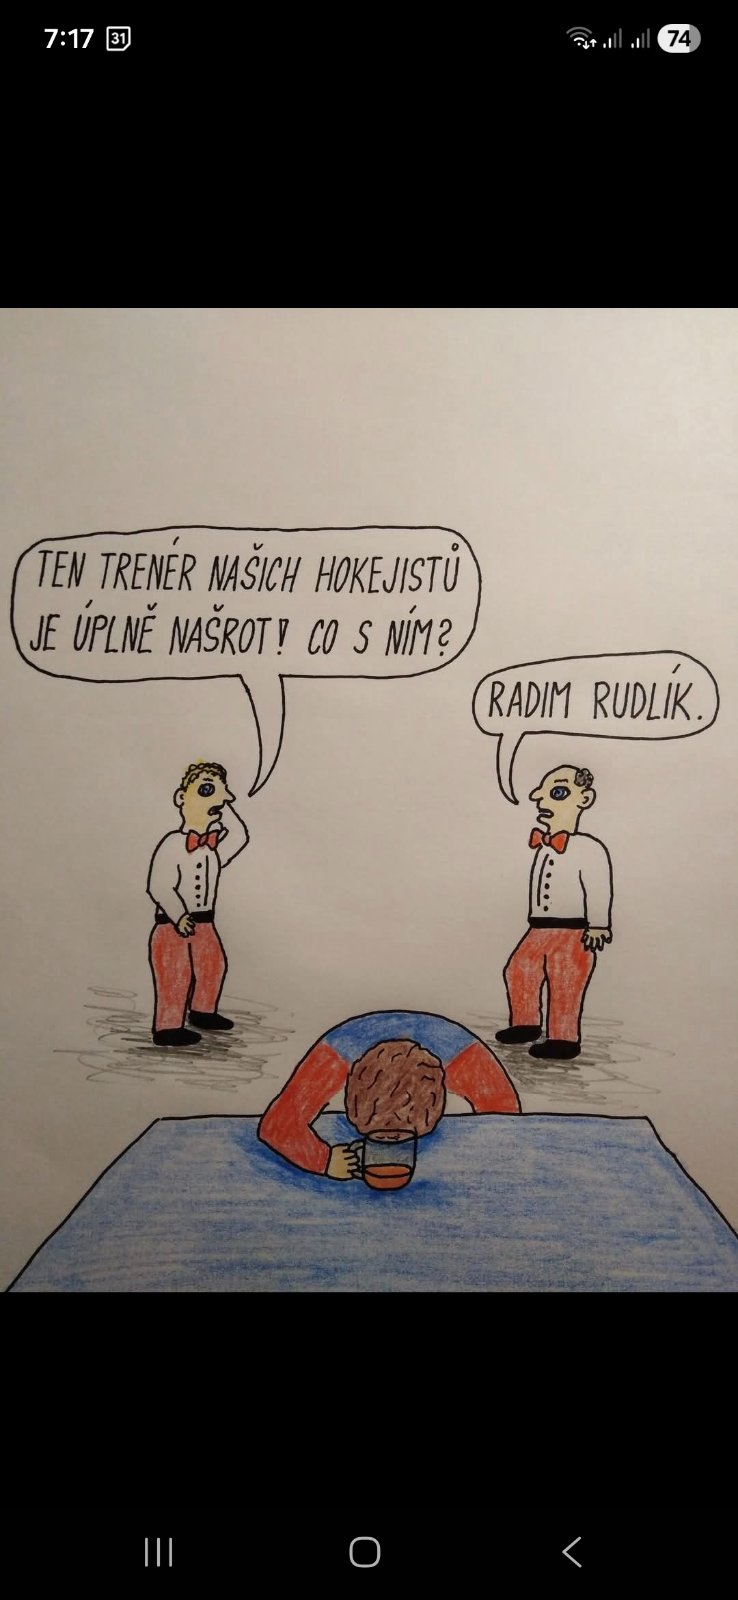 7:17
31
74
TEN TRENÉR NAŠICH HOKEJISTŮ
JE ÚPLNĚ NAŠROT! CO S NÍM?
RADIM RUDLÍK.